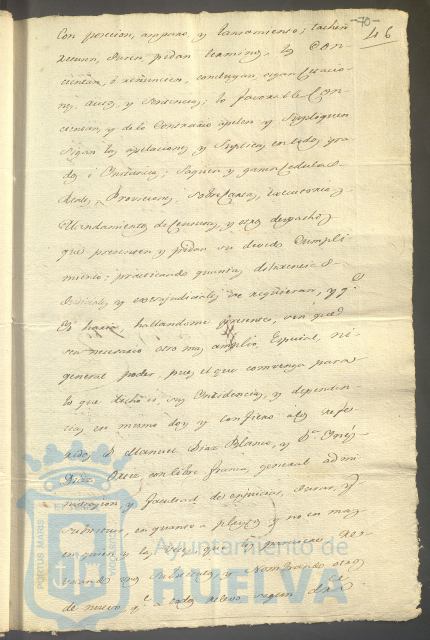 -70-
46
Con posecion, amparo, y lanzamientos; tachen
juren, pidan terminos, los con-
cientan, ó renuncien, concluyan, oigan Citacio-
nes, autos, y Sentencias; lo favorable Con-
cientan, y de lo Contrario apelen y Supliquen
sigan las apelaciones y Suplicas en todos gra-
dos é Ynstancias; Saquen y ganen Cedulas
Reales, Provisiones, Sobrecartas, executorias
Mandamientos de Censuras, y otros despachos
que presenten y pidan su devido Cumpli
miento; practicando quantas diligencias
Judiciales y extrajudiciales se requieran, y q.e
Yo haria hallandome presente, sin que
sea necesario otro mas amplio, Especial, ni
general poder, pues el que convenga para
lo que dicho es, sus Yncidencias, y dependen-
cias, ese mismo doy y confiero á los refe-
ridos D. Manuel Diaz Blanco, y D.n
Diaz con libre, franca, general admi
nistracion, y facultad de enjuiciar, Jurar, y
substituir, en quanto a pleytos y no en mas
en quien y las veces que les pareciere Re-
vocando unos Substitutos, y Nombrando otros
de nuevo q.e a todos relevo segun dro.
Ayuntamiento de
HUELVA
PORTUS MARIS